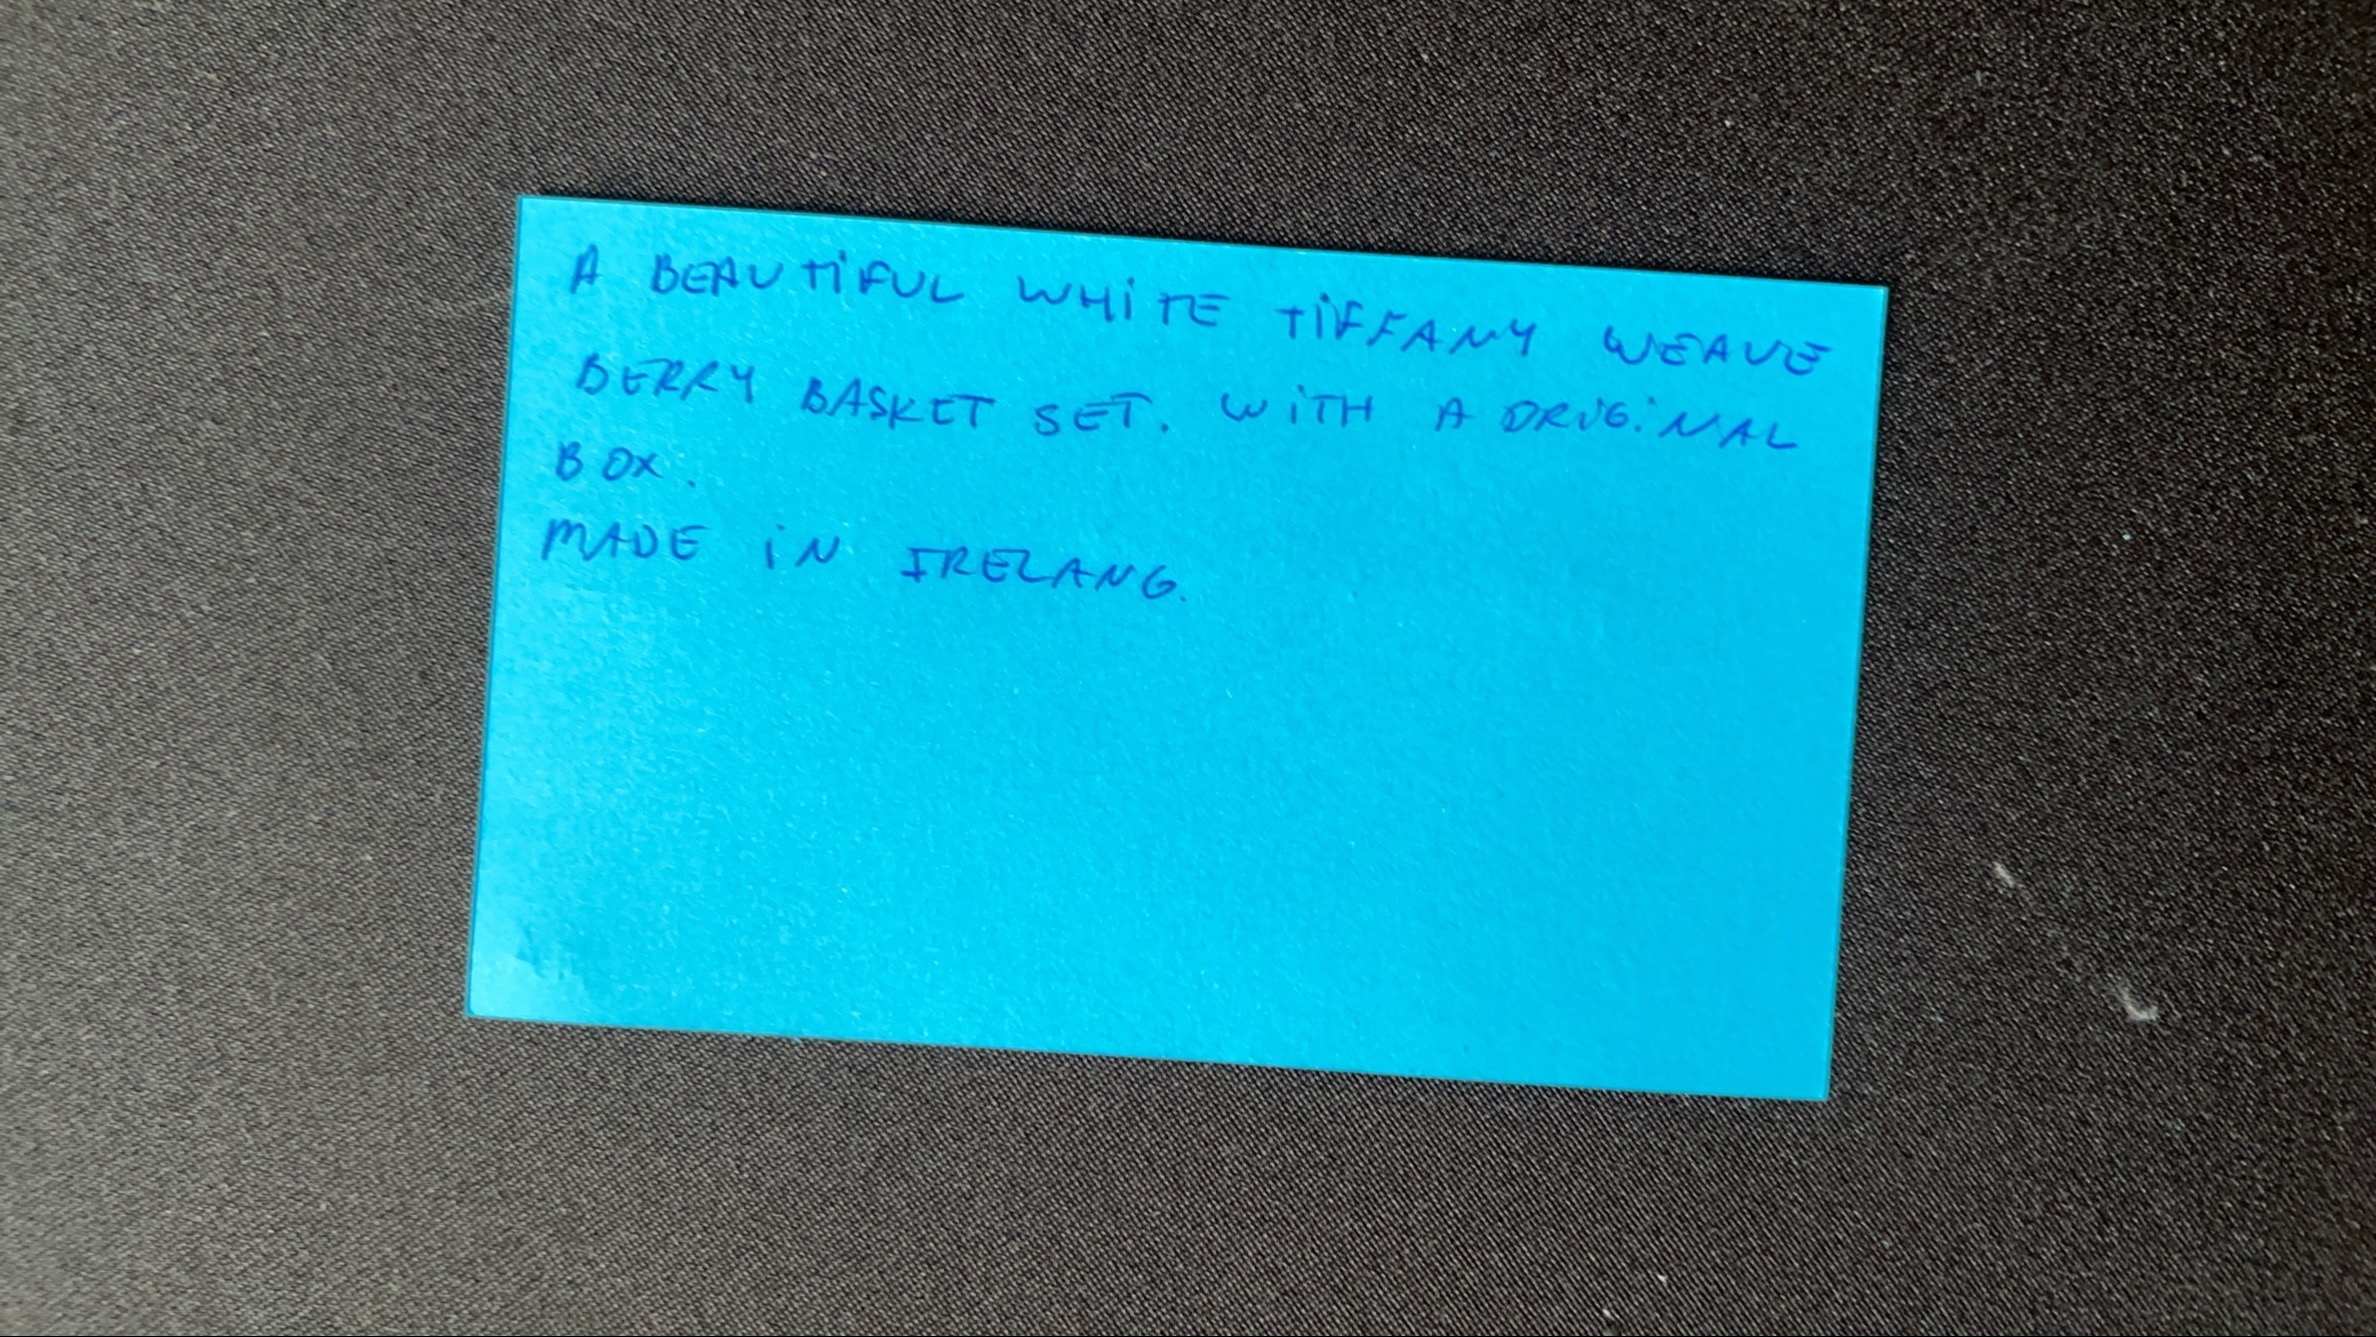 A BEAUTiFUL WHiTE TiFFANY WEAVE
BERRY BASKET SET. WiTH A ORiGiNAL
BOX.
MADE iN IRELANG.